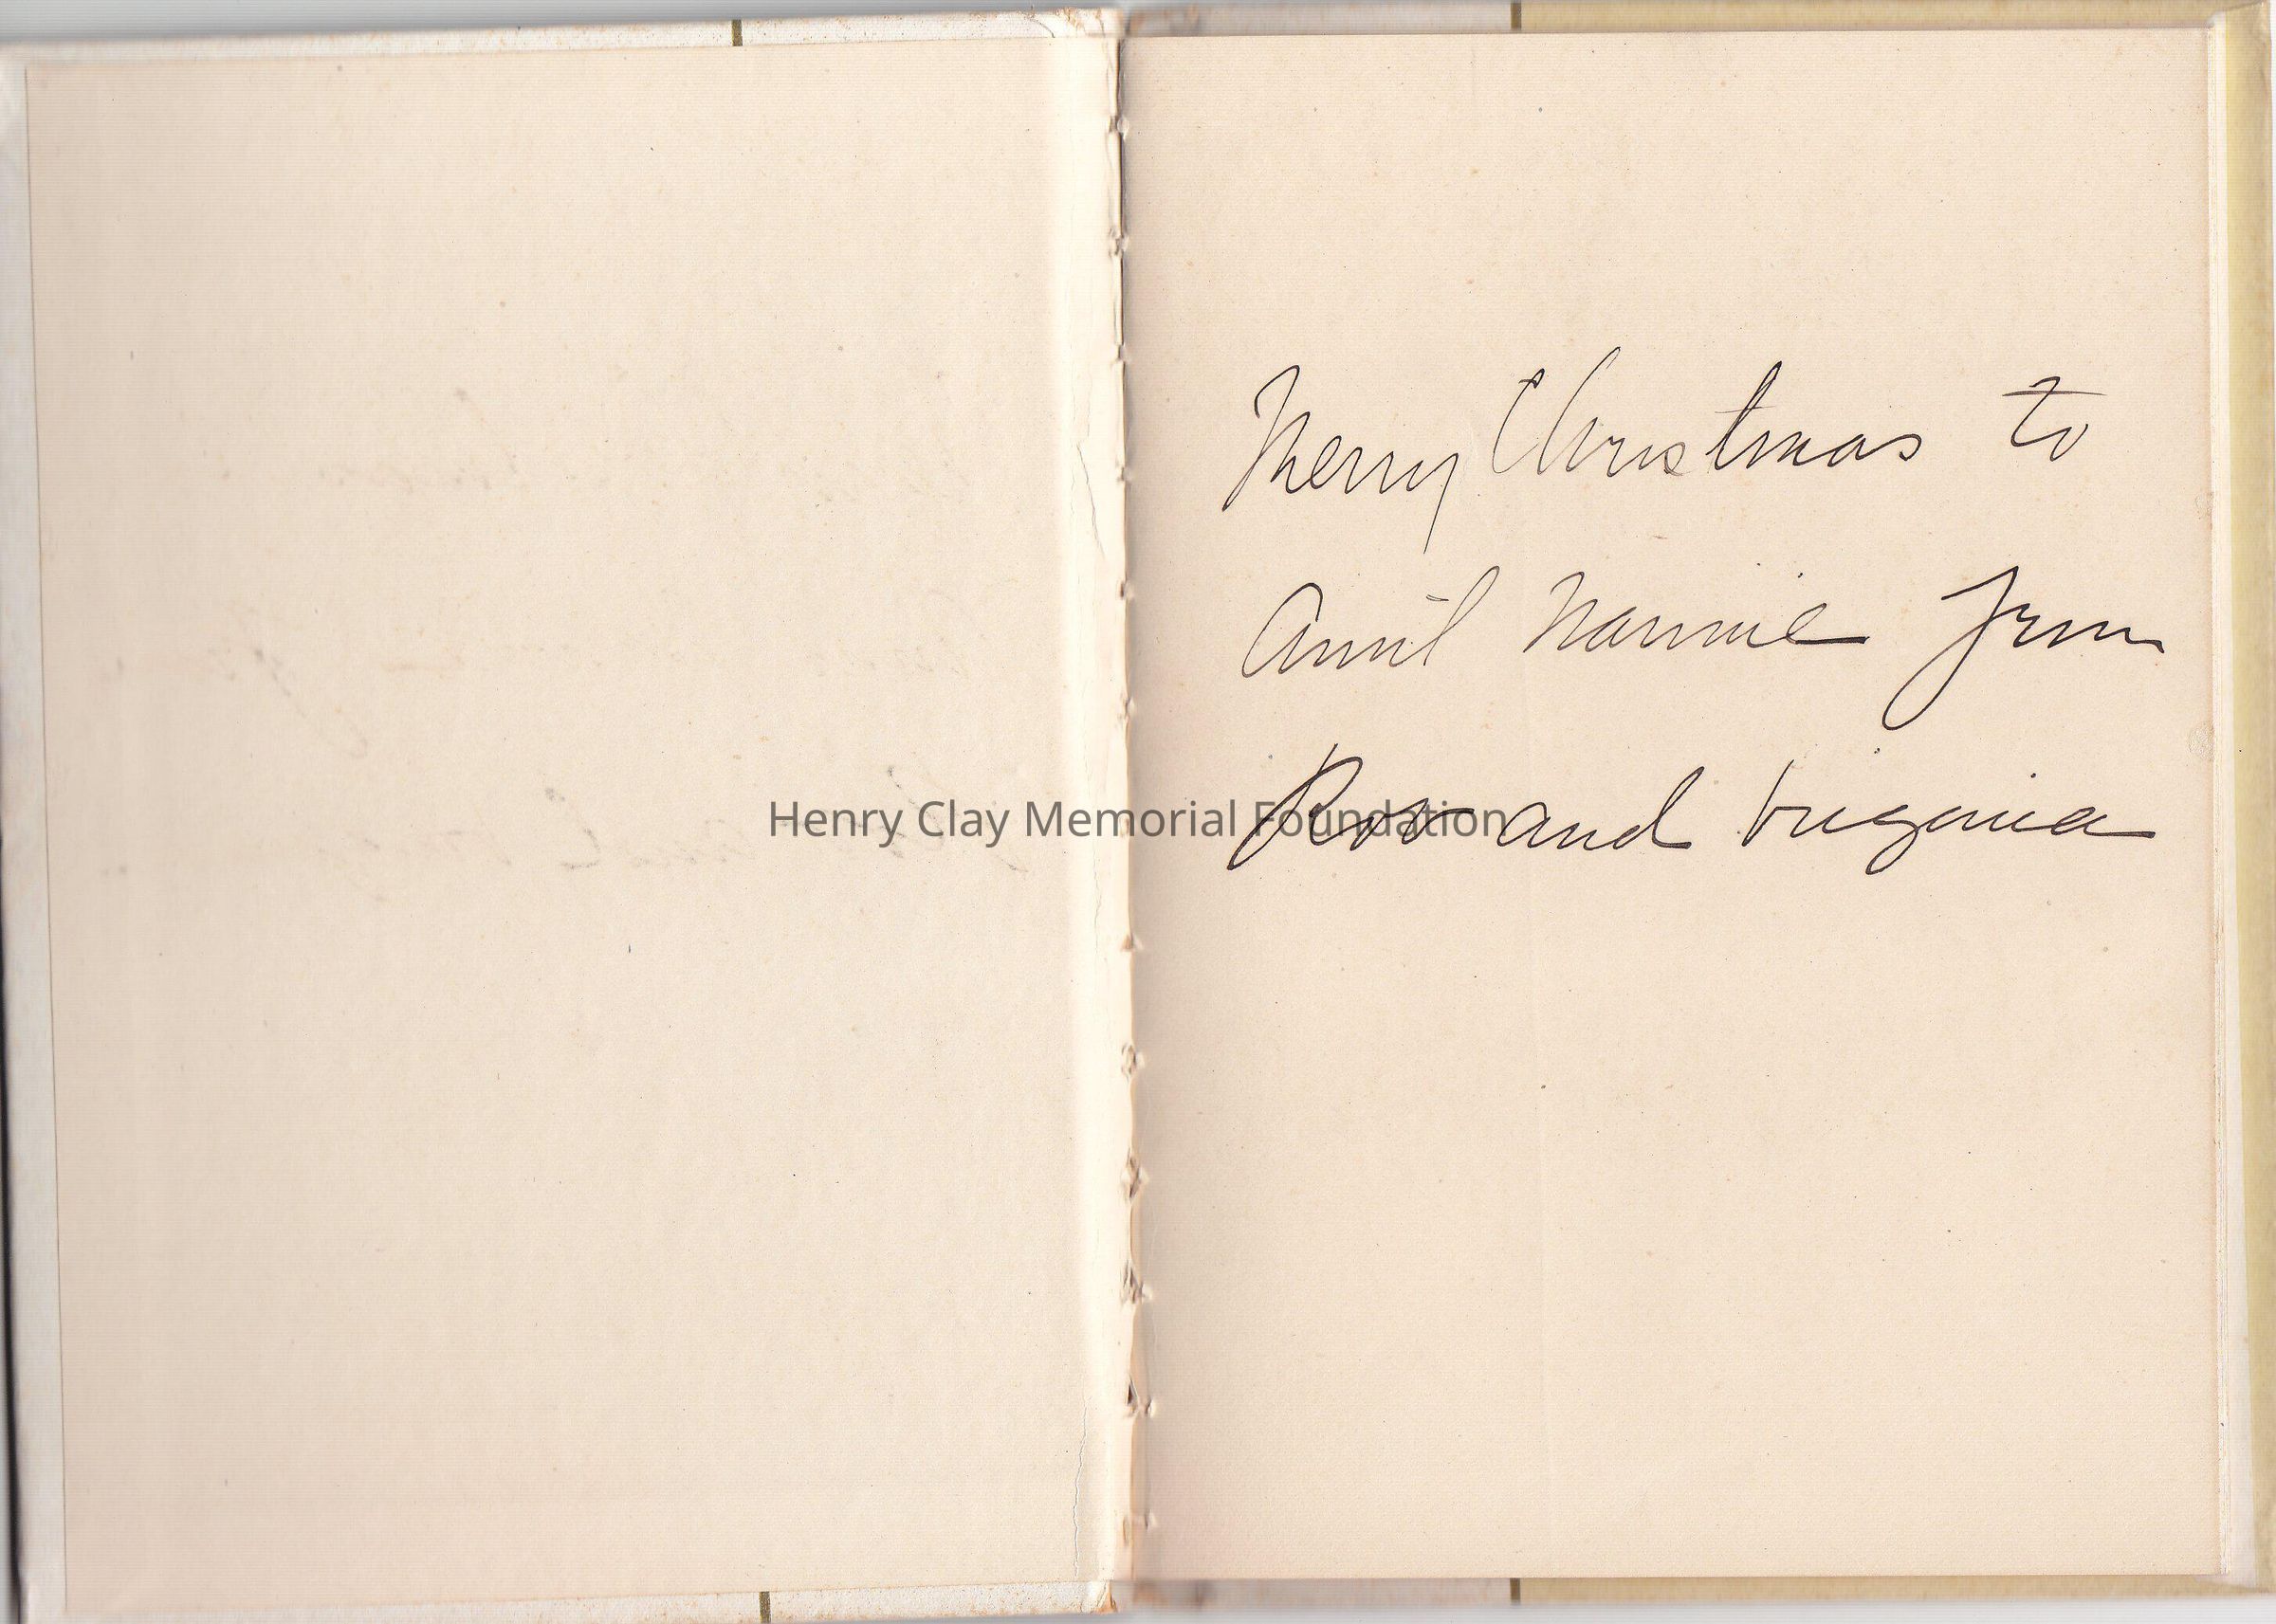 Merry Christmas to
Aunt Nannie from
Henry Clay Memorial Foundation
and Virginia